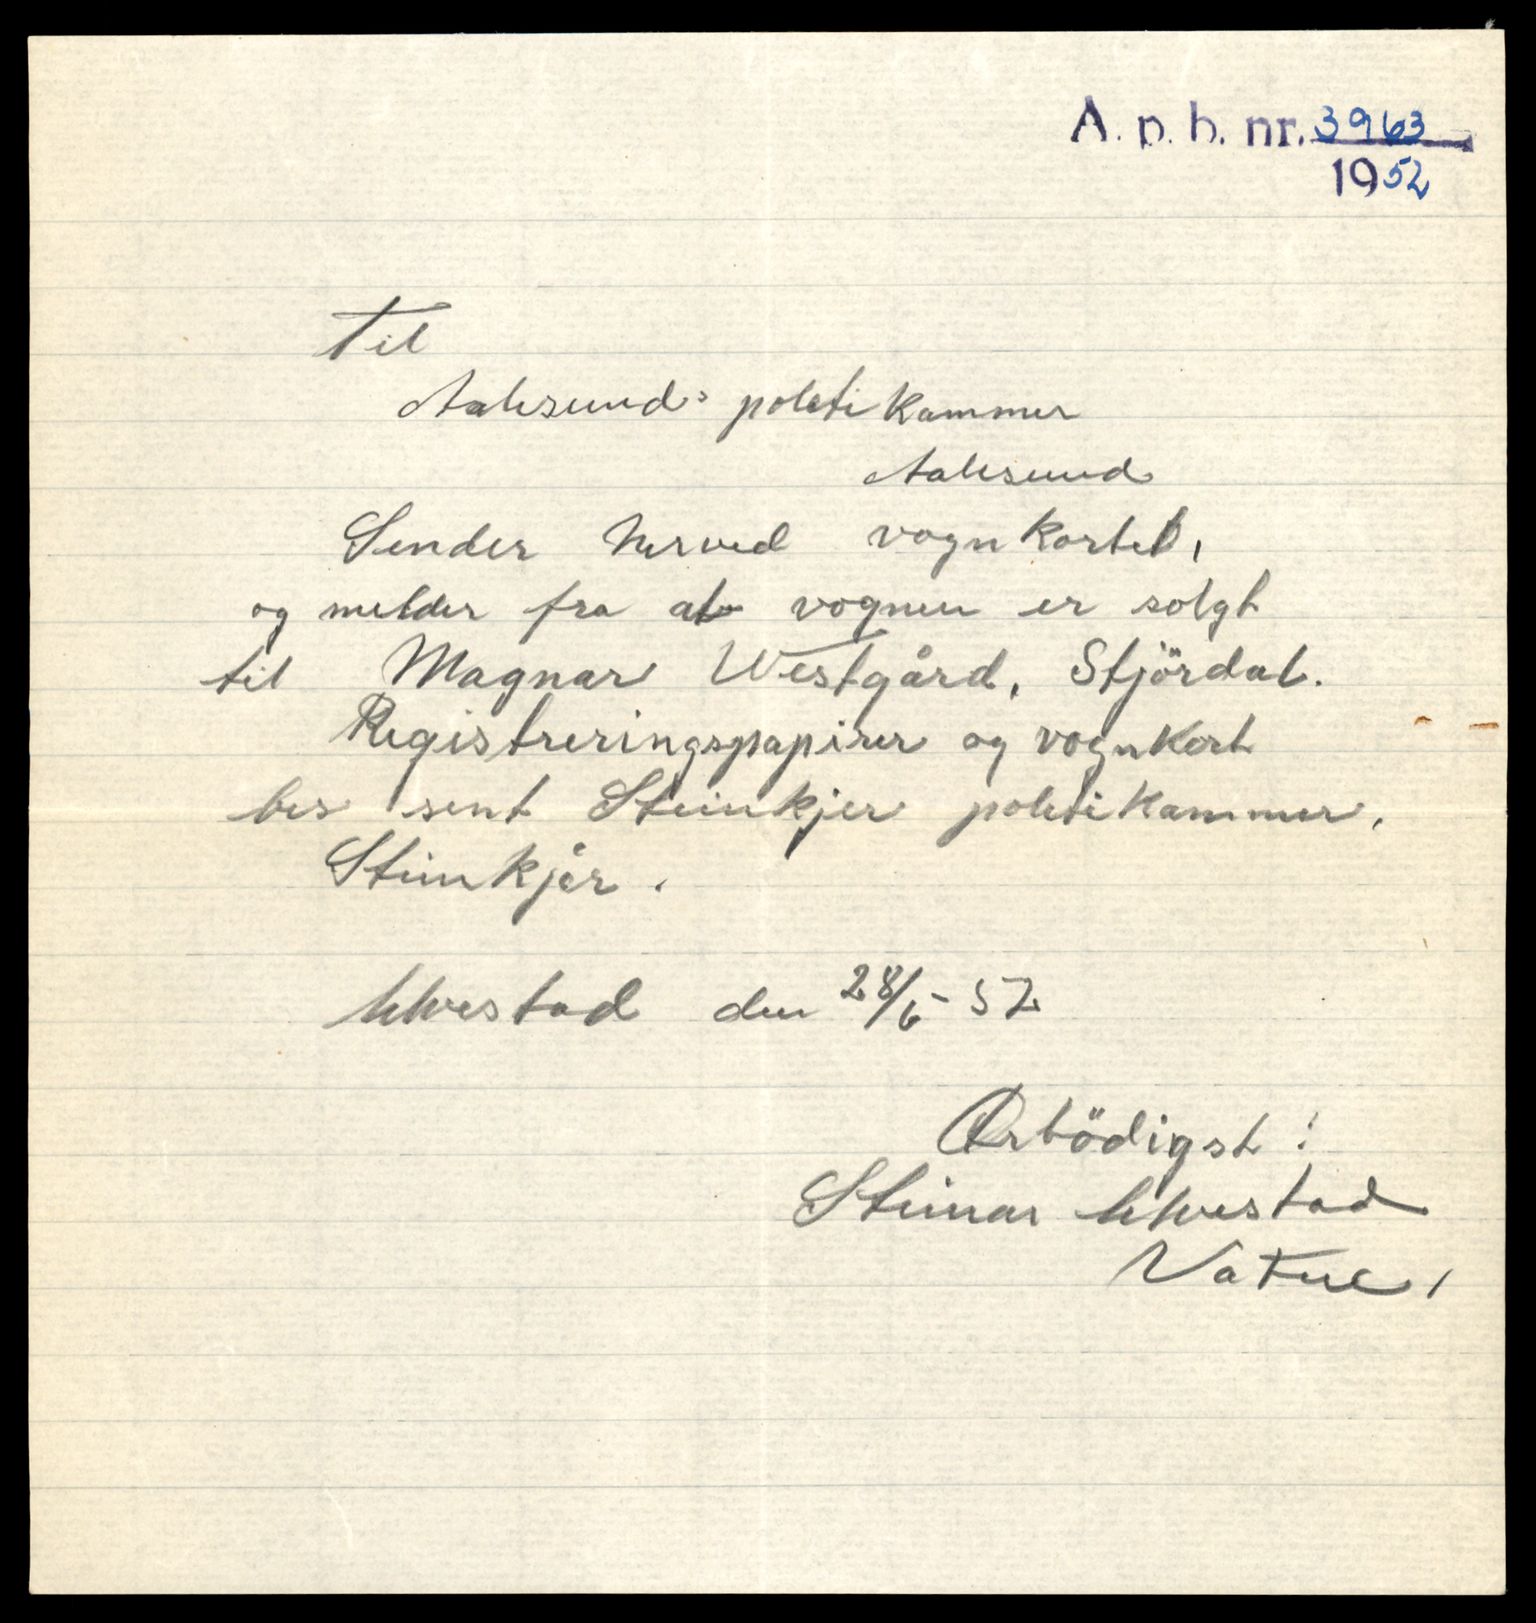 A. p. b. nr. 3963
1952
Til
Aalesunds politikammer
Aalesund
Sender herved vognkortet,
og melder fra at vognen er solgt
til Magnar Westgård, Stjördal.
Registreringspapirer og vognkort
bes sent Steinkjer politikammer,
Steinkjer.
Ulvestad den 28/6-52
Ærbödigst!
Steinar Ulvestad
Vatne,